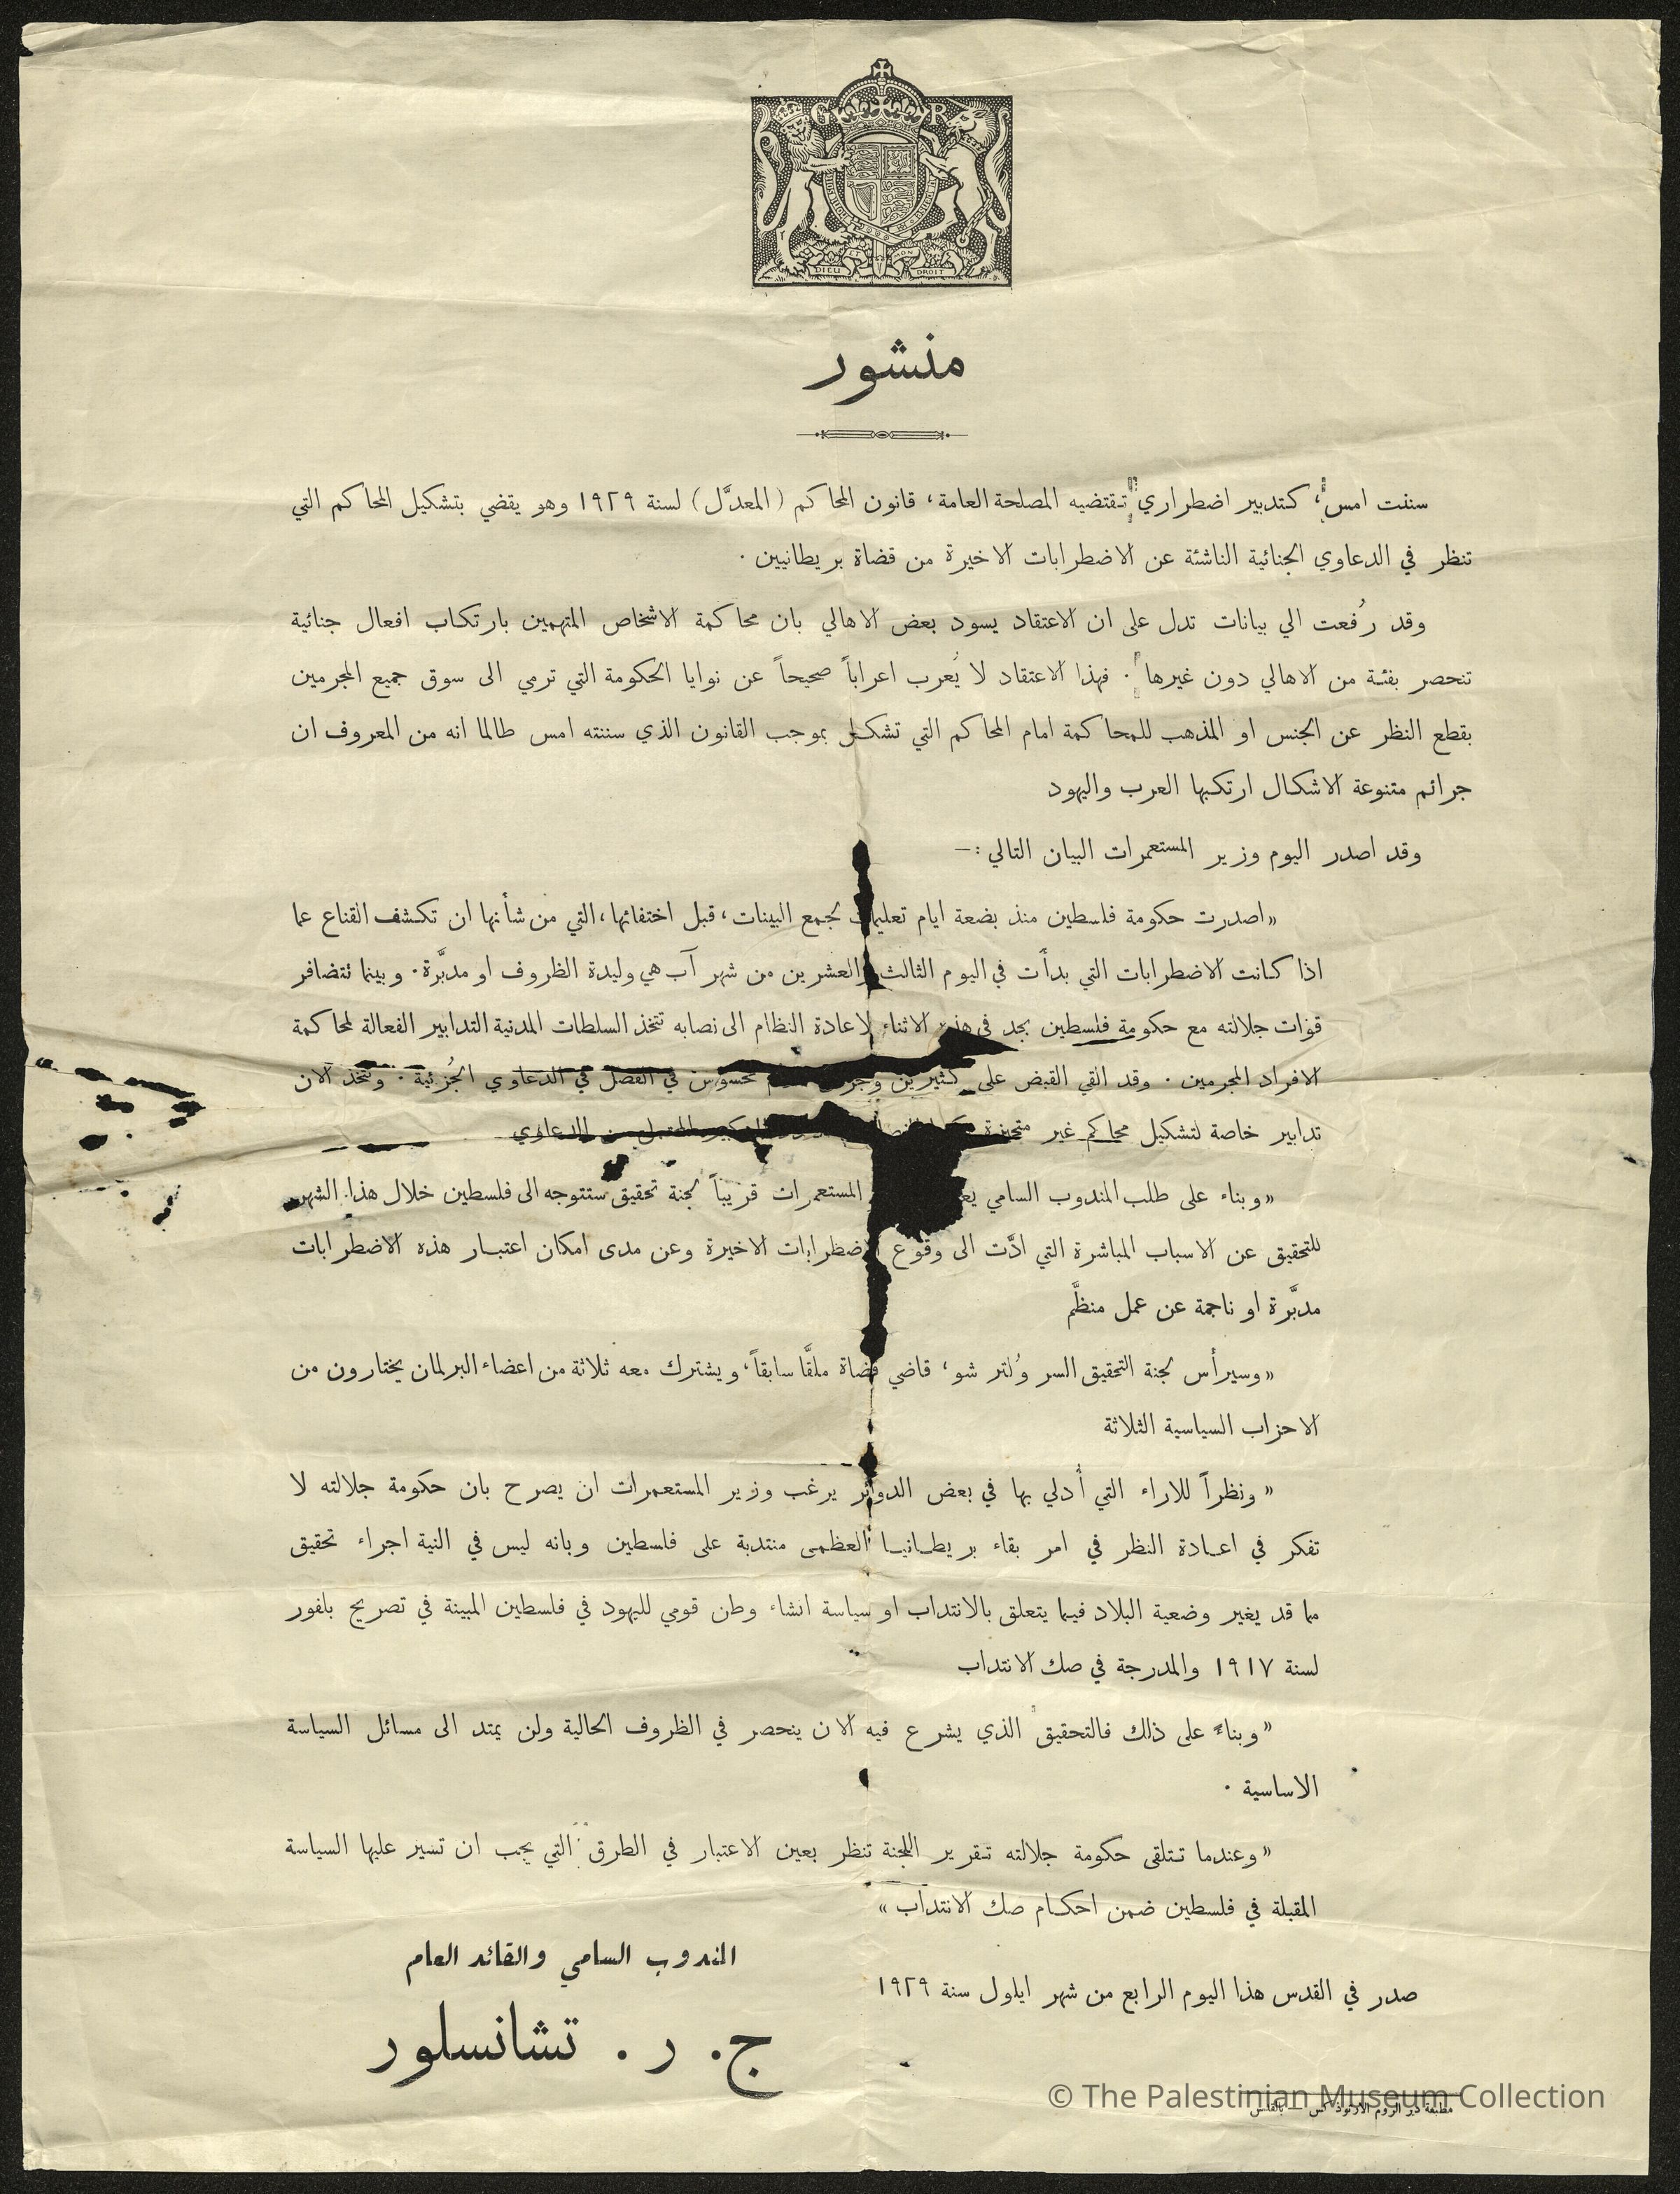 G R
DIEU ET MON DROIT
منشور
سننت امس، كتدبير اضطراري تقتضيه المصلحة العامة، قانون المحاكم (المعدَّل) لسنة ١٩٢٩ وهو يقضي بتشكيل المحاكم التي
تنظر في الدعاوي الجنائية الناشئة عن الاضطرابات الاخيرة من قضاة بريطانيين .
وقد رُفعت الي بيانات تدل على ان الاعتقاد يسود بعض الاهالي بان محاكمة الاشخاص المتهمين بارتكاب افعال جنائية
تنحصر بفئة من الاهالي دون غيرها . فهذا الاعتقاد لا يُعرب اعراباً صحيحاً عن نوايا الحكومة التي ترمي الى سوق جميع المجرمين
بقطع النظر عن الجنس او المذهب للمحاكمة امام المحاكم التي تشكل بموجب القانون الذي سننته امس طالما انه من المعروف ان
جرائم متنوعة الاشكال ارتكبها العرب واليهود
وقد اصدر اليوم وزير المستعمرات البيان التالي :—
«اصدرت حكومة فلسطين منذ بضعة ايام تعليمات لجمع البينات، قبل اختفائها، التي من شأنها ان تكشف القناع عما
اذا كانت الاضطرابات التي بدأت في اليوم الثالث والعشرين من شهر آب هي وليدة الظروف او مدبَّرة. وبينما تتضافر
قوات جلالته مع حكومة فلسطين بجد في هذه الاثناء لاعادة النظام الى نصابه تتخذ السلطات المدنية التدابير الفعالة لمحاكمة
الافراد المجرمين . وقد القي القبض على كثيرين وجرى محسوس في الفصل في الدعاوي الجُزئية . وتتخذ الان
تدابير خاصة لتشكيل محاكم غير متحيزة الكبير المقبل من الدعاوي
«وبناء على طلب المندوب السامي المستعمرات قريباً لجنة تحقيق ستتوجه الى فلسطين خلال هذا الشهر
للتحقيق عن الاسباب المباشرة التي ادَّت الى وقوع الاضطرابات الاخيرة وعن مدى امكان اعتبار هذه الاضطرابات
مدبَّرة او ناجمة عن عمل منظَّم
«وسيرأس لجنة التحقيق السر وُلتر شو، قاضي قضاة ملقَّا سابقاً، ويشترك معه ثلاثة من اعضاء البرلمان يختارون من
الاحزاب السياسية الثلاثة
«ونظراً للاراء التي أُدلي بها في بعض الدوائر يرغب وزير المستعمرات ان يصرح بان حكومة جلالته لا
تفكر في اعادة النظر في امر بقاء بريطانيا العظمى منتدبة على فلسطين وبانه ليس في النية اجراء تحقيق
مما قد يغير وضعية البلاد فيما يتعلق بالانتداب او سياسة انشاء وطن قومي لليهود في فلسطين المبينة في تصريح بلفور
لسنة ١٩١٧ والمدرجة في صك الانتداب
«وبناءً على ذلك فالتحقيق الذي يشرع فيه الان ينحصر في الظروف الحالية ولن يمتد الى مسائل السياسة
الاساسية .
«وعندما تتلقى حكومة جلالته تقرير اللجنة تنظر بعين الاعتبار في الطرق التي يجب ان تسير عليها السياسة
المقبلة في فلسطين ضمن احكام صك الانتداب»
المندوب السامي والقائد العام
صدر في القدس هذا اليوم الرابع من شهر ايلول سنة ١٩٢٩
ج. ر. تشانسلور
© The Palestinian Museum Collection
مطبعة دير الروم الارثوذكس — بالقدس